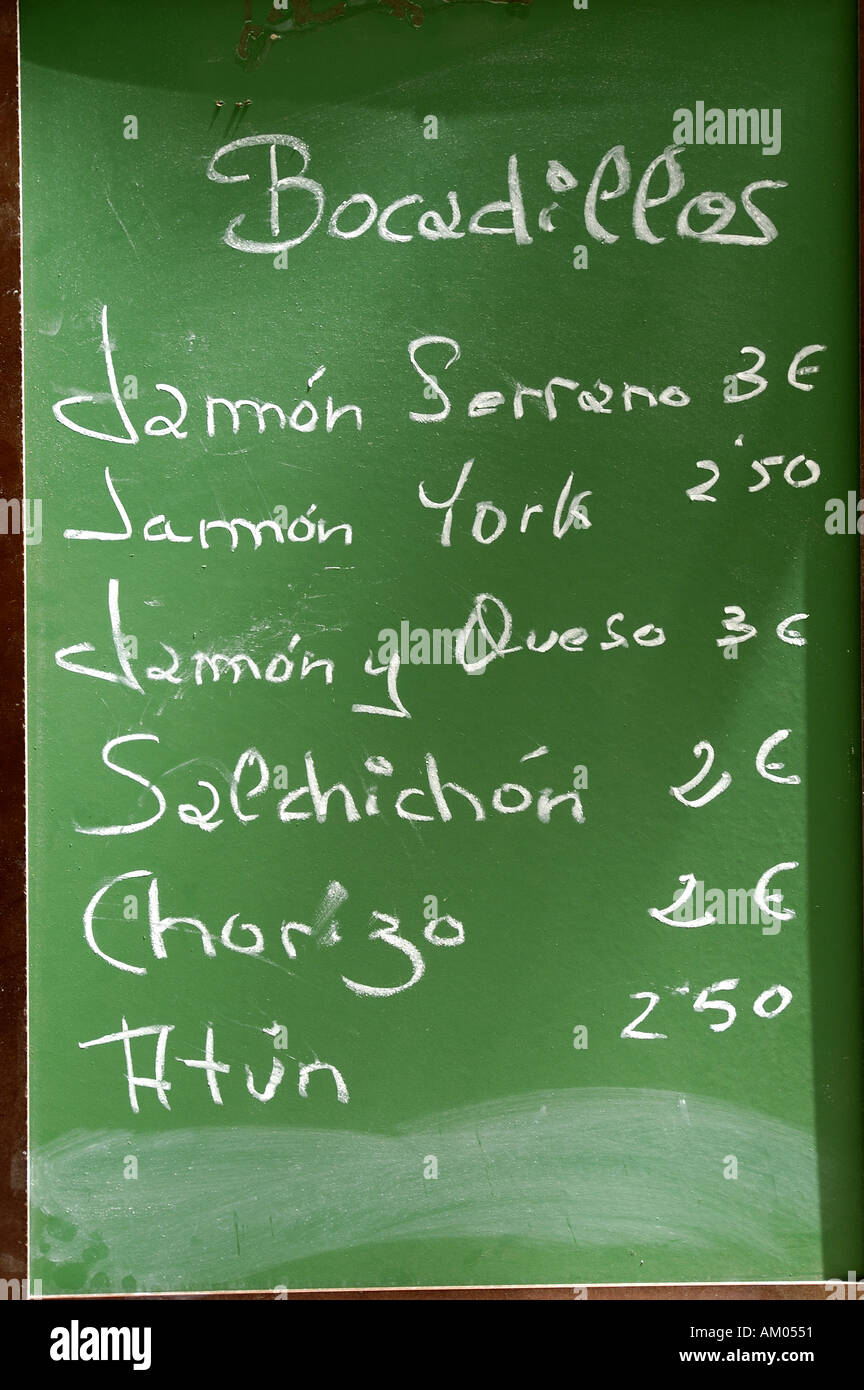 Bocadillos
Jamón Serrano 3 €
Jamón York 2'50
Jamón y Queso 3 €
Salchichón 2 €
Chorizo 2 €
Atún 2'50
alamy
Image ID: AM0551
www.alamy.com